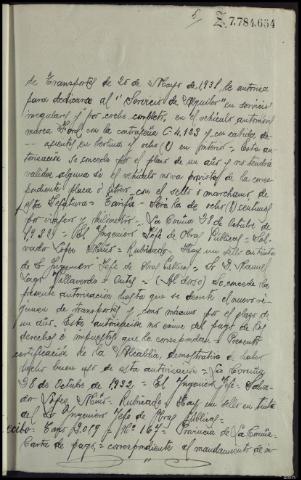 Z. 7.784.654
de Transportes de 25 de Mayo de 1931, le autoriza
para dedicarse al "Servicio de Alquiler" en servicio
regular y "por coche completo, en el vehículo automóvil
marca Ford con la contraseña C-4.123 y con cabida de
asientos en berlina y ocho (8) en interior = Esta au-
torización se concede por el plazo de un año y no tendrá
validez alguna si el vehículo no va provisto de la corres-
pondiente placa
esta Jefatura = Tarifa = Será la de ocho (8) céntimos
por viajero y kilómetro = La Coruña 28 de Octubre de
= El Ingeniero Jefe de Obras Públicas = Sal-
vador López = Rubricado = Hay un sello en tinta
de = Ingeniero Jefe de Obras Públicas = Sr. D. Manuel
Lago Villaverde = = (Al dorso) Se concede la
presente autorización hasta que se dicte el nuevo ré-
gimen de transportes y como máximo por el plazo de
un año. Esta autorización no exime del pago de los
derechos e impuestos que le correspondan = Presentó
certificación de la Alcaldía, demostrativa de haber
hecho buen uso de esta autorización = La Coruña
28 de Octubre de 1932 = El Ingeniero Jefe = Salva-
dor López = Rubricado = Hay un sello en tinta
del Ingeniero Jefe de Obras Públicas =
= Nº 167 = Provincia de La Coruña =
Carta de pago = correspondiente al mandamiento de in-